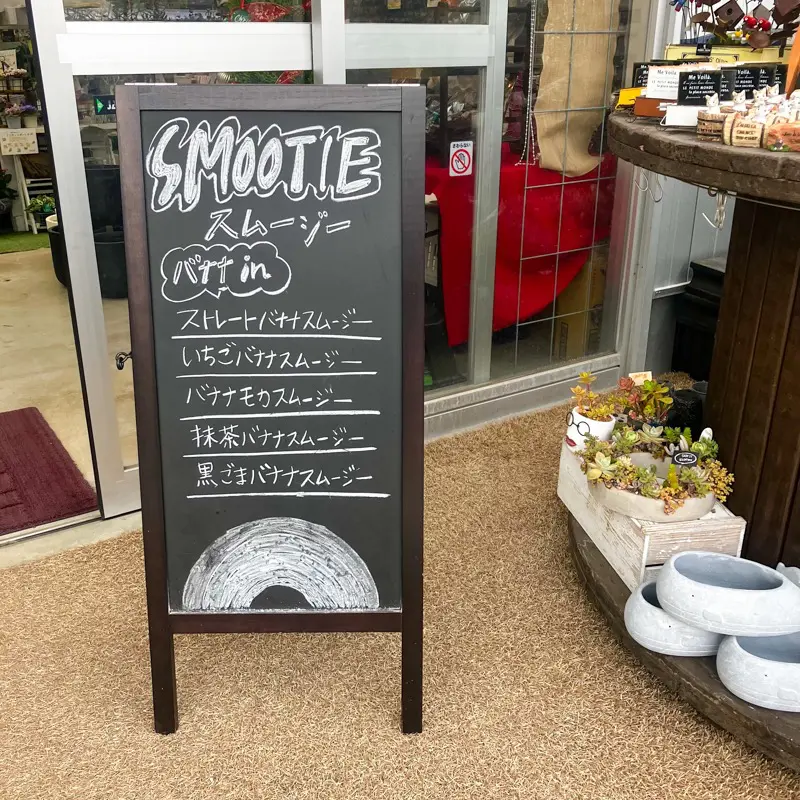 SMOOTIE
スムージー
バナナ in
ストレートバナナスムージー
いちごバナナスムージー
バナナモカスムージー
抹茶バナナスムージー
黒ごまバナナスムージー
さわらないで
Me Voilà.
Me Voilà.